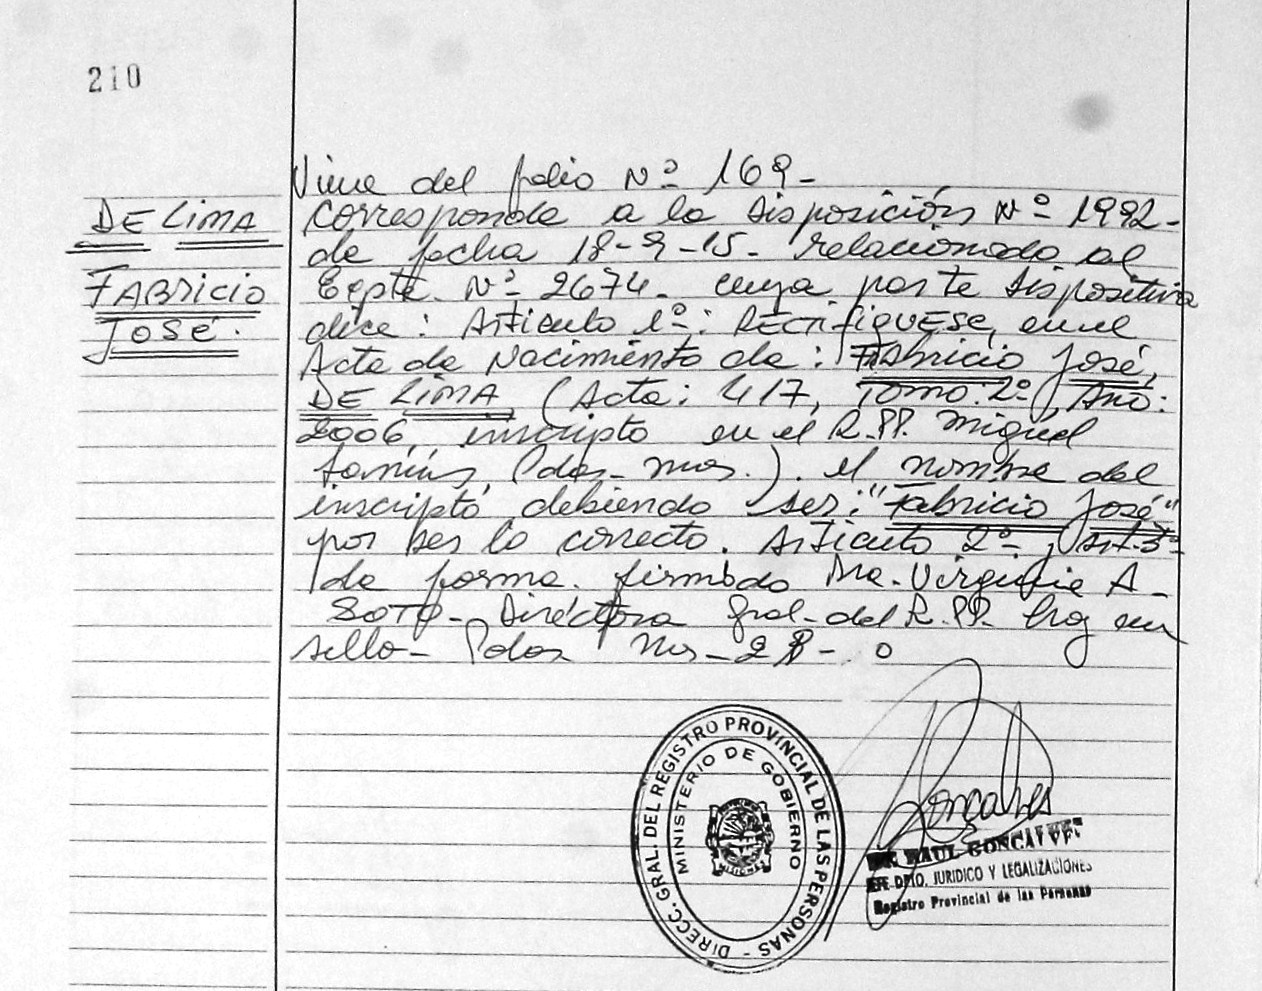 210
Viene del folio Nº 169-
DE LIMA
FABRICIO
JOSÉ.
Corresponde a la Disposición Nº 1992-
de fecha 18-9-15- relacionado al
Expte. Nº 2674- cuya parte dispositiva
dice: Artículo 1º: RECTIFIQUESE, en el
Acta de Nacimiento de: Fabricio José,
DE LIMA (Acta: 417, Tomo: 2º, Año:
2006, inscripto en el R.PP. Miguel
Lanús, (Pdas-Mnes.). el nombre del
inscripto debiendo ser: "Fabricio José"
por ser lo correcto. Artículo 2º, Art-3º-
de forma. firmado Dra. Virginia A-
SOTO- Directora Gral-del R.PP. Hay un
sello- Pdas Mns-28-
DIRECC. GRAL. DEL REGISTRO PROVINCIAL DE LAS PERSONAS -
MINISTERIO DE GOBIERNO
MISIONES
Goncalves
RAUL GONCALVES
JEFE DPTO. JURIDICO Y LEGALIZACIONES
Registro Provincial de las Personas